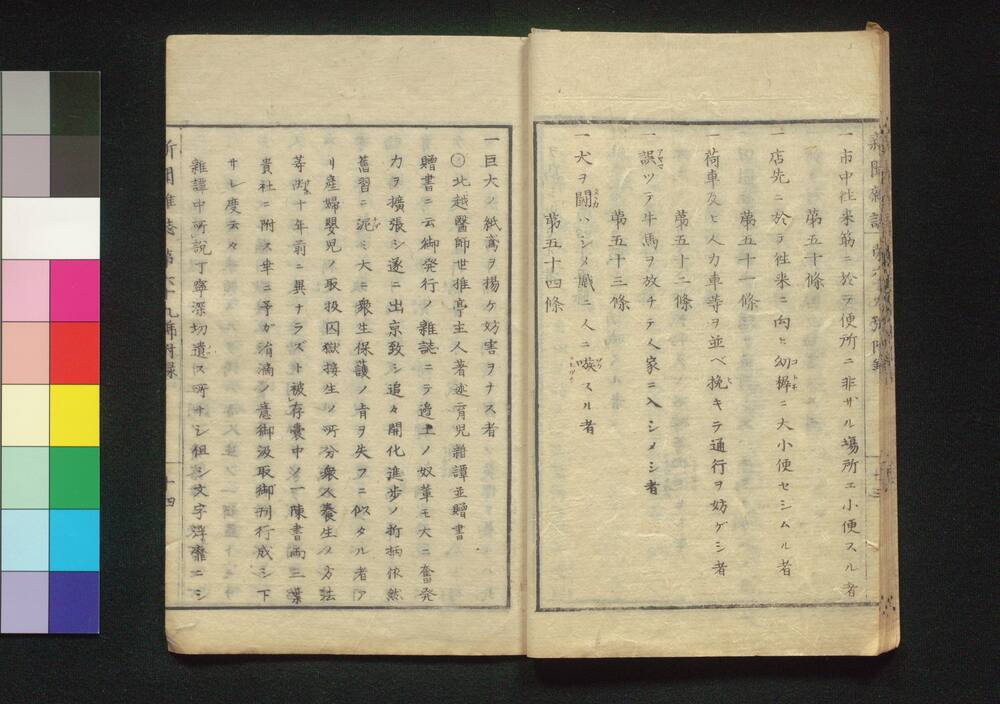 新聞雜誌 第六十九號附録 十三
一市中往来筋ニ於テ便所ニ非ザル場所エ小便スル者
第五十條
一店先ニ於テ往来ニ向ヒ幼稺ニ大小便セシムル者
第五十一條
一荷車及ヒ人力車等ヲ並ベ挽キテ通行ヲ妨ゲシ者
第五十二條
一誤ツテ牛馬ヲ放チテ人家ニ入シメシ者
第五十三條
一犬ヲ闘ハシメ戯ニ人ニ嗾スル者
第五十四條
一巨大ノ紙鳶ヲ揚ケ妨害ヲナス者
〇北越醫師世推亭主人著述育児雜譚並贈書
贈書ニ云御発行ノ雜誌ニテ邊土ノ奴輩モ大ニ奮発
力ヲ擴張シ遂ニ出京致シ追々開化進歩ノ折柄依然
舊習ニ泥ミ大ニ衆生保護ノ旨ヲ失フニ似タル者ア
リ産婦嬰児ノ取扱囚獄接生ノ所分衆人養生ノ方法
等尚十年前ニ異ナラズト被存嚢中ノ一陳書両三葉
貴社ニ附ス幸ニ予ガ涓滴ノ意御汲取御刊行成シ下
サレ度云々
雜譚中所説丁寧深切遺ス所ナシ但シ文字浮靡ニシ
新聞雜誌 第六十九號附録 十四